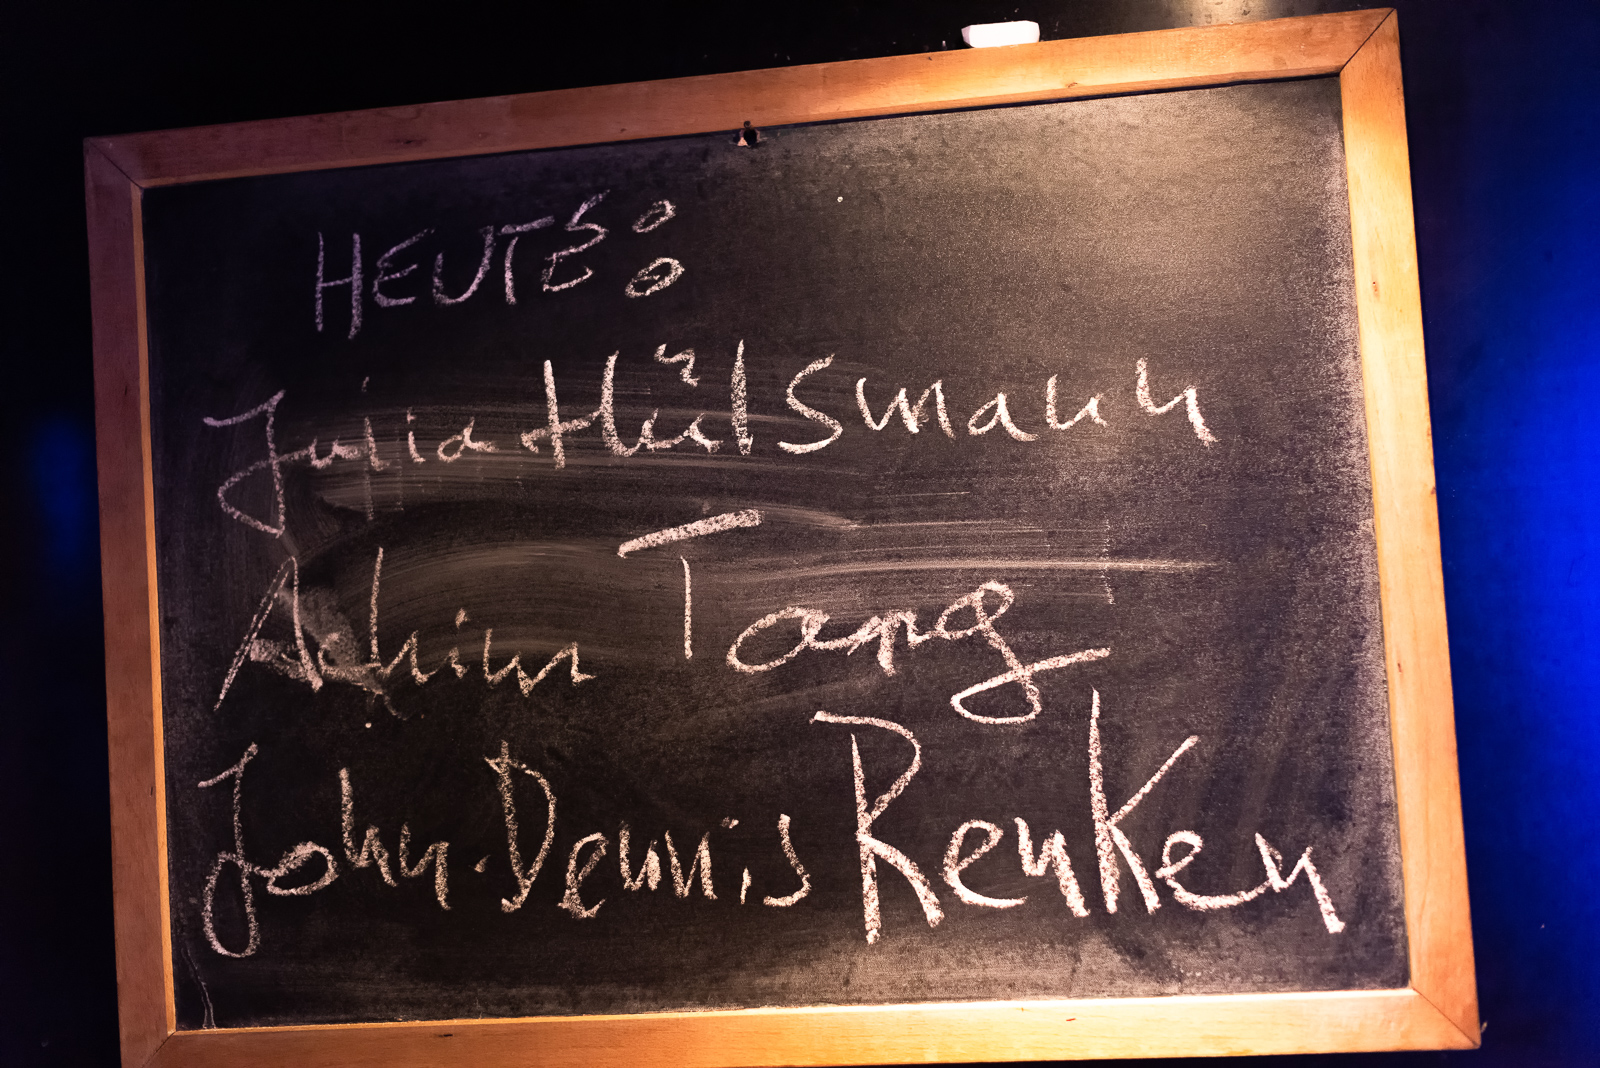 HEUTE:
Julia Hülsmann
Achim Tang
John-Dennis Renken